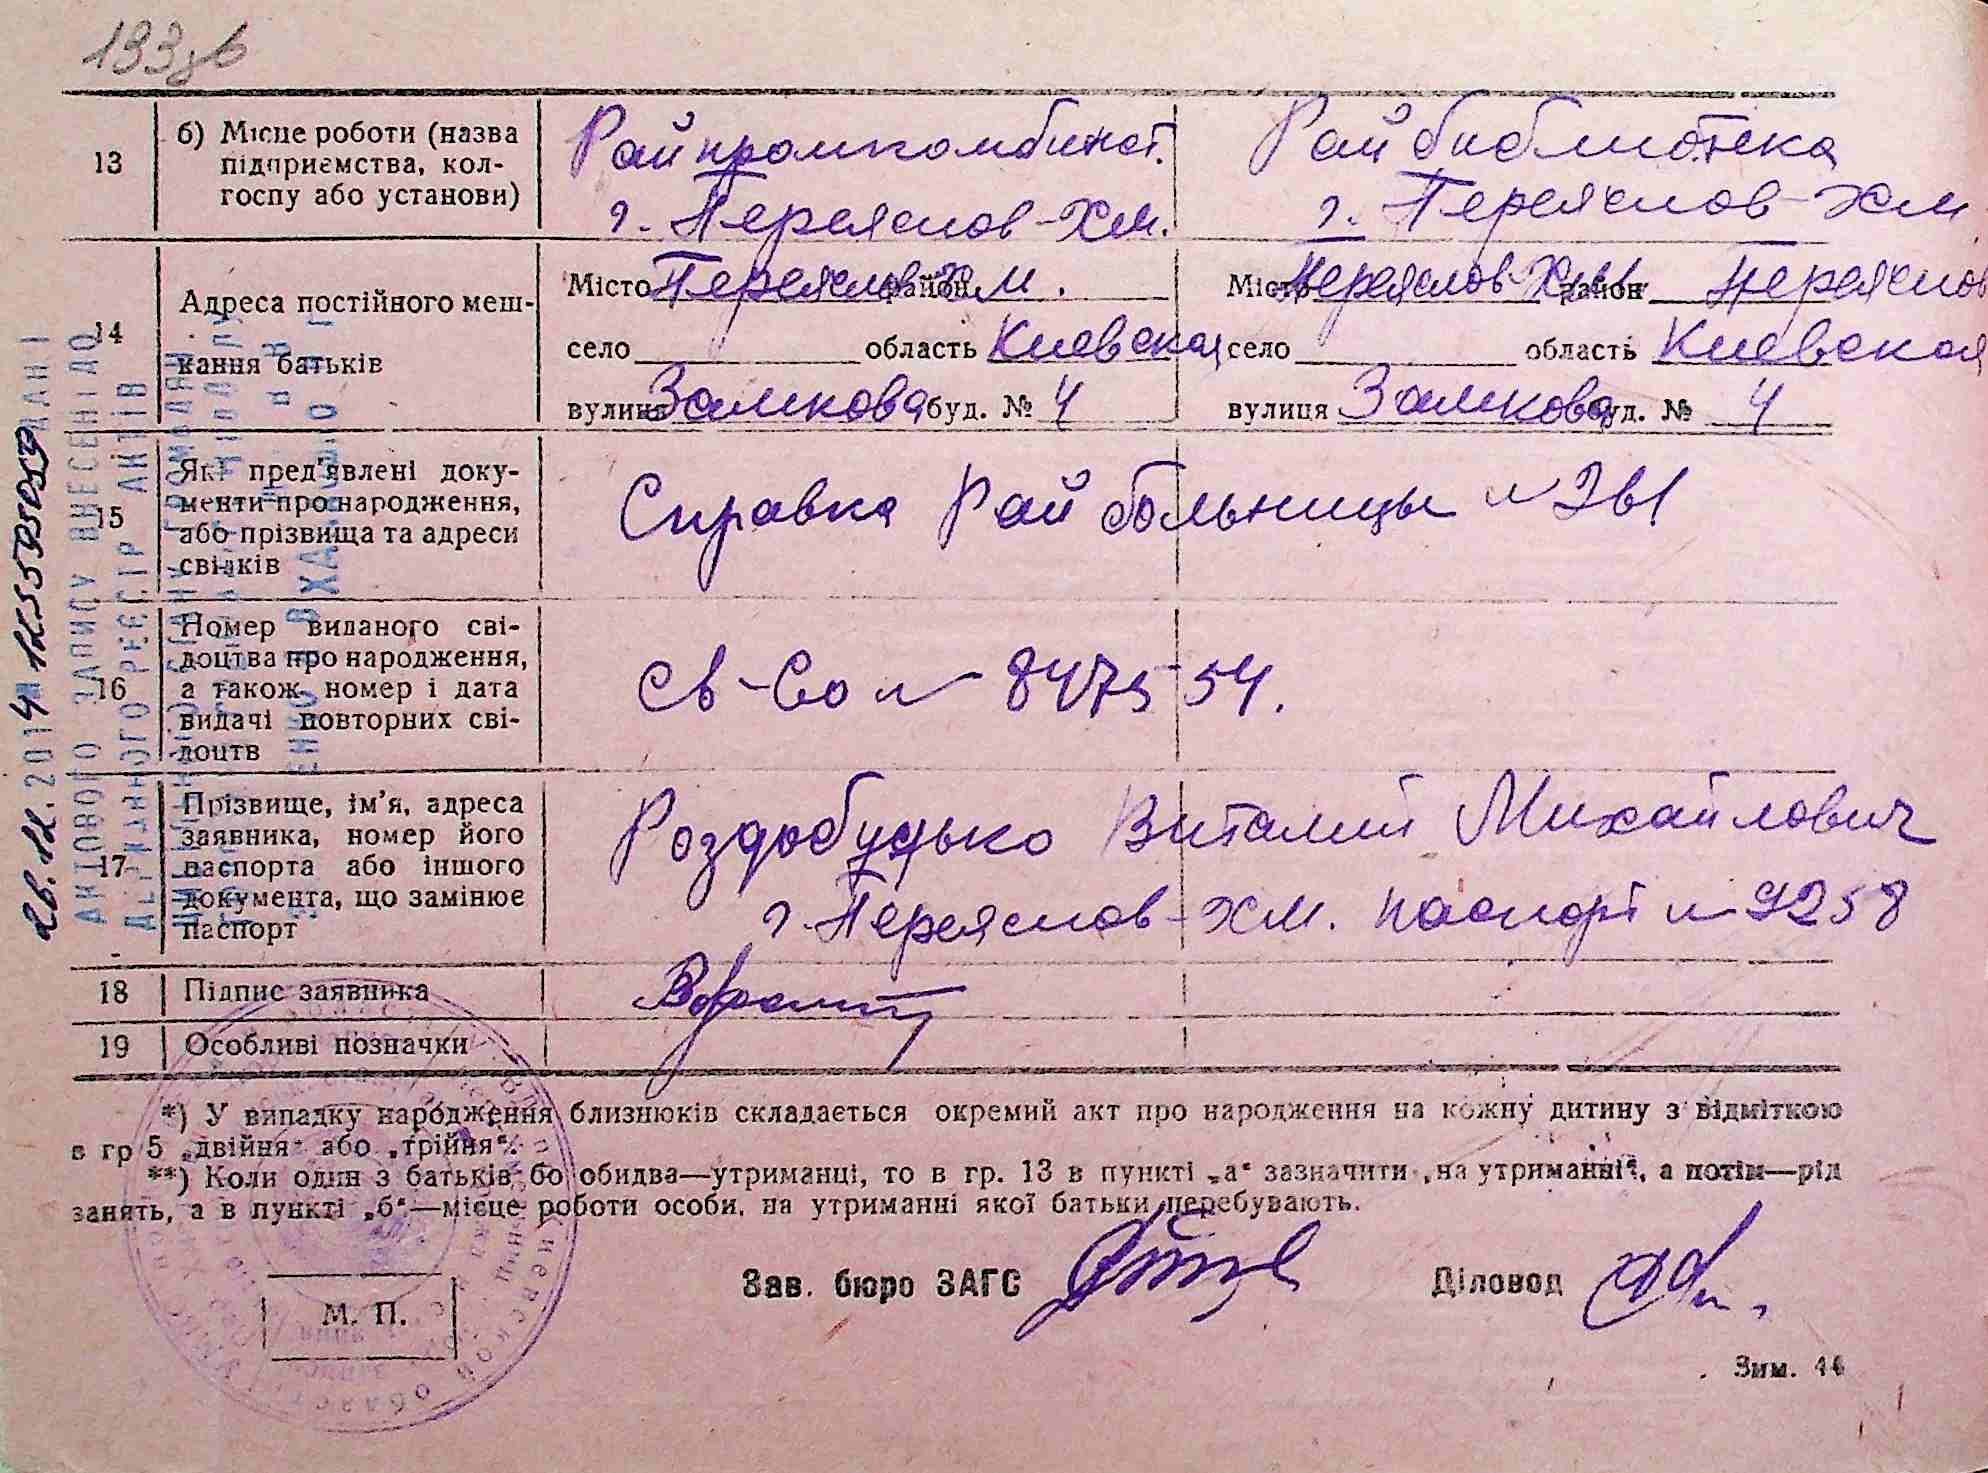 193зв
13
б) Місце роботи (назва
підприємства, кол-
госпу або установи)
Райпромкомбинат.
г. Переяслов-Хм.
Рай библиотека
г. Переяслов-Хм
14
Адреса постійного меш-
кання батьків
Місто Переяслов Хм. район
село область Киевская
вулиця Замкова буд. № 4
Місто Переяслов-Хм район Переяслов
село область Киевская
вулиця Замкова буд. № 4
15
Які пред'явлені доку-
менти про народження,
або прізвища та адреси
свідків
Справка Рай больницы №
16
Номер виданого сві-
доцтва про народження,
а також номер і дата
видачі повторних сві-
доцтв
Св-во № 847554.
17
Прізвище, ім'я, адреса
заявника, номер його
паспорта або іншого
документа, що замінює
паспорт
Роздобудько Виталий Михайлович
г. Переяслов-Хм. паспорт № 9258
18
Підпис заявника
19
Особливі позначки
*) У випадку народження близнюків складається окремий акт про народження на кожну дитину з відміткою
в гр 5 „двійня“ або „трійня“.
**) Коли один з батьків бо обидва—утриманці, то в гр. 13 в пункті „а“ зазначити „на утриманні“, а потім—рід
занять, а в пункті „б“—місце роботи особи, на утриманні якої батьки перебувають.
Зав. бюро ЗАГС
Діловод
М. П.
Зим.
26.12.2014
ДАНІ
АКТОВОГО ЗАПИСУ ВНЕСЕНІ ДО
ДЕРЖАВНОГО РЕЄСТР АКТІВ